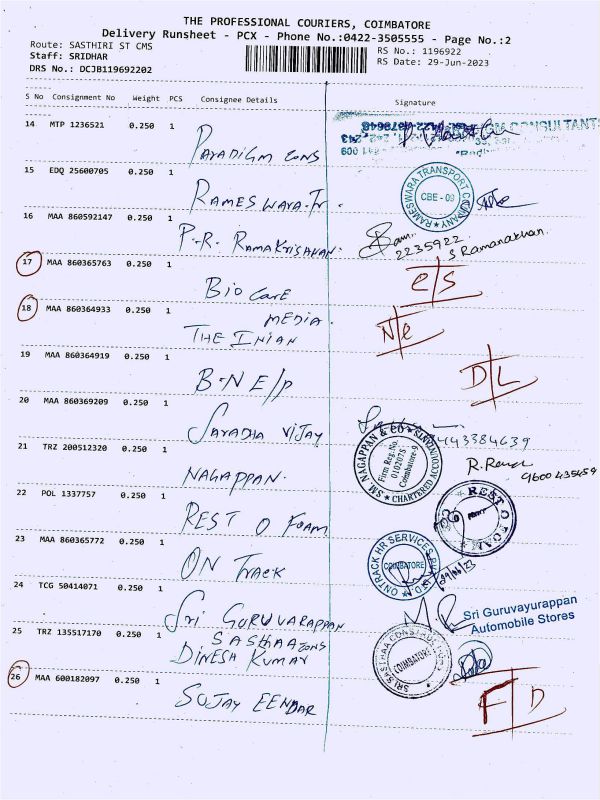 THE PROFESSIONAL COURIERS, COIMBATORE
Delivery Runsheet - PCX - Phone No.:0422-3505555 - Page No.:2
Route: SASTHIRI ST CMS
RS No.: 1196922
Staff: SRIDHAR
RS Date: 29-Jun-2023
DRS No.: DCJB119692202
S No Consignment No Weight PCS Consignee Details Signature
14 MTP 1236521 0.250 1
PARADIGM ZONS
CONSULTANT
15 EDQ 25600705 0.250 1
RAMESWARA. Tr.
RAMESWARA TRANSPORT COMPANY
CBE - 09
16 MAA 860592147 0.250 1
P.R. RAMAKRISHNAN.
2235922
S Ramanathan.
17 MAA 860365763 0.250 1
BIO CARE
C/S
18 MAA 860364933 0.250 1
MEDIA.
THE INIAN
N/C
19 MAA 860364919 0.250 1
B.N E/P
D L
20 MAA 860369209 0.250 1
SARADHA VIJAY
9443384639
21 TRZ 200512320 0.250 1
NAGAPPAN.
SM NAGAPPAN & CO
CHARTERED ACCOUNTANTS
Firm Reg.No.
010207S
Coimbatore-9
9600435459
22 POL 1337757 0.250 1
REST O FOAM
REST O FOAM
23 MAA 860365772 0.250 1
ON TRACK
ONTRACK HR SERVICES
COIMBATORE
24 TCG 50414071 0.250 1
SRI GURUVARAPPAN
Sri Guruvayurappan
Automobile Stores
25 TRZ 135517170 0.250 1
SASTHAA ZONS
DINESH KUMAR
SRI SASTHAA CONSTRUCTION
COIMBATORE
26 MAA 600182097 0.250 1
SUJAY EENDAR
F D